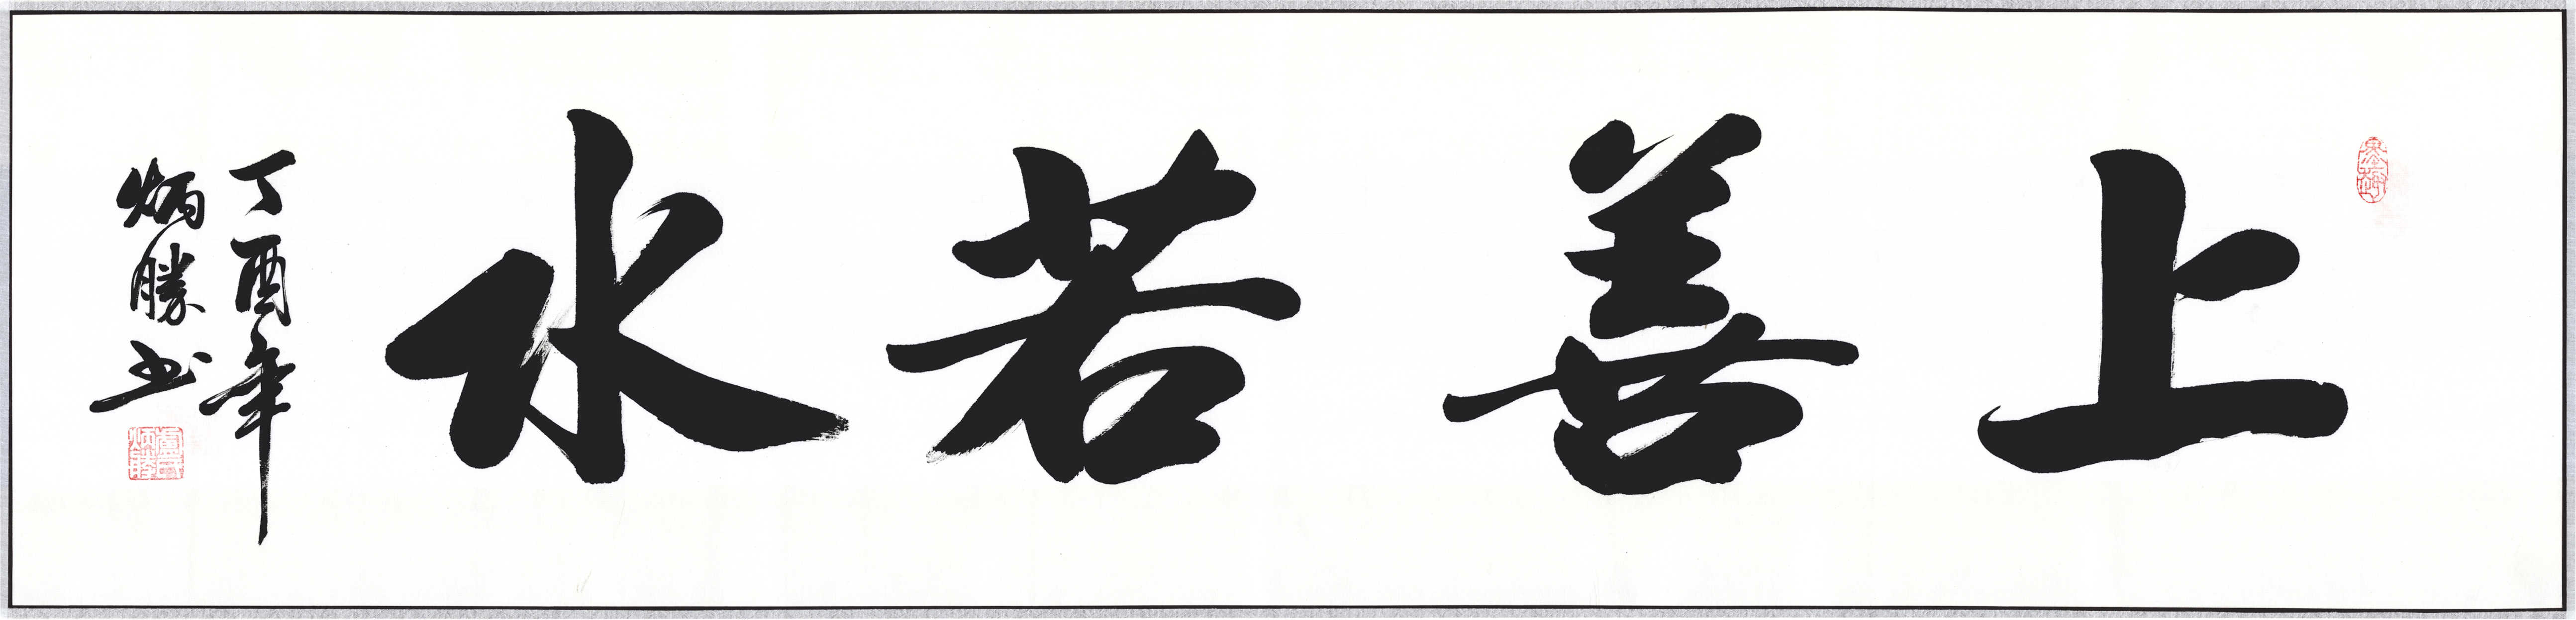 上善若水
丁酉年
炳勝书